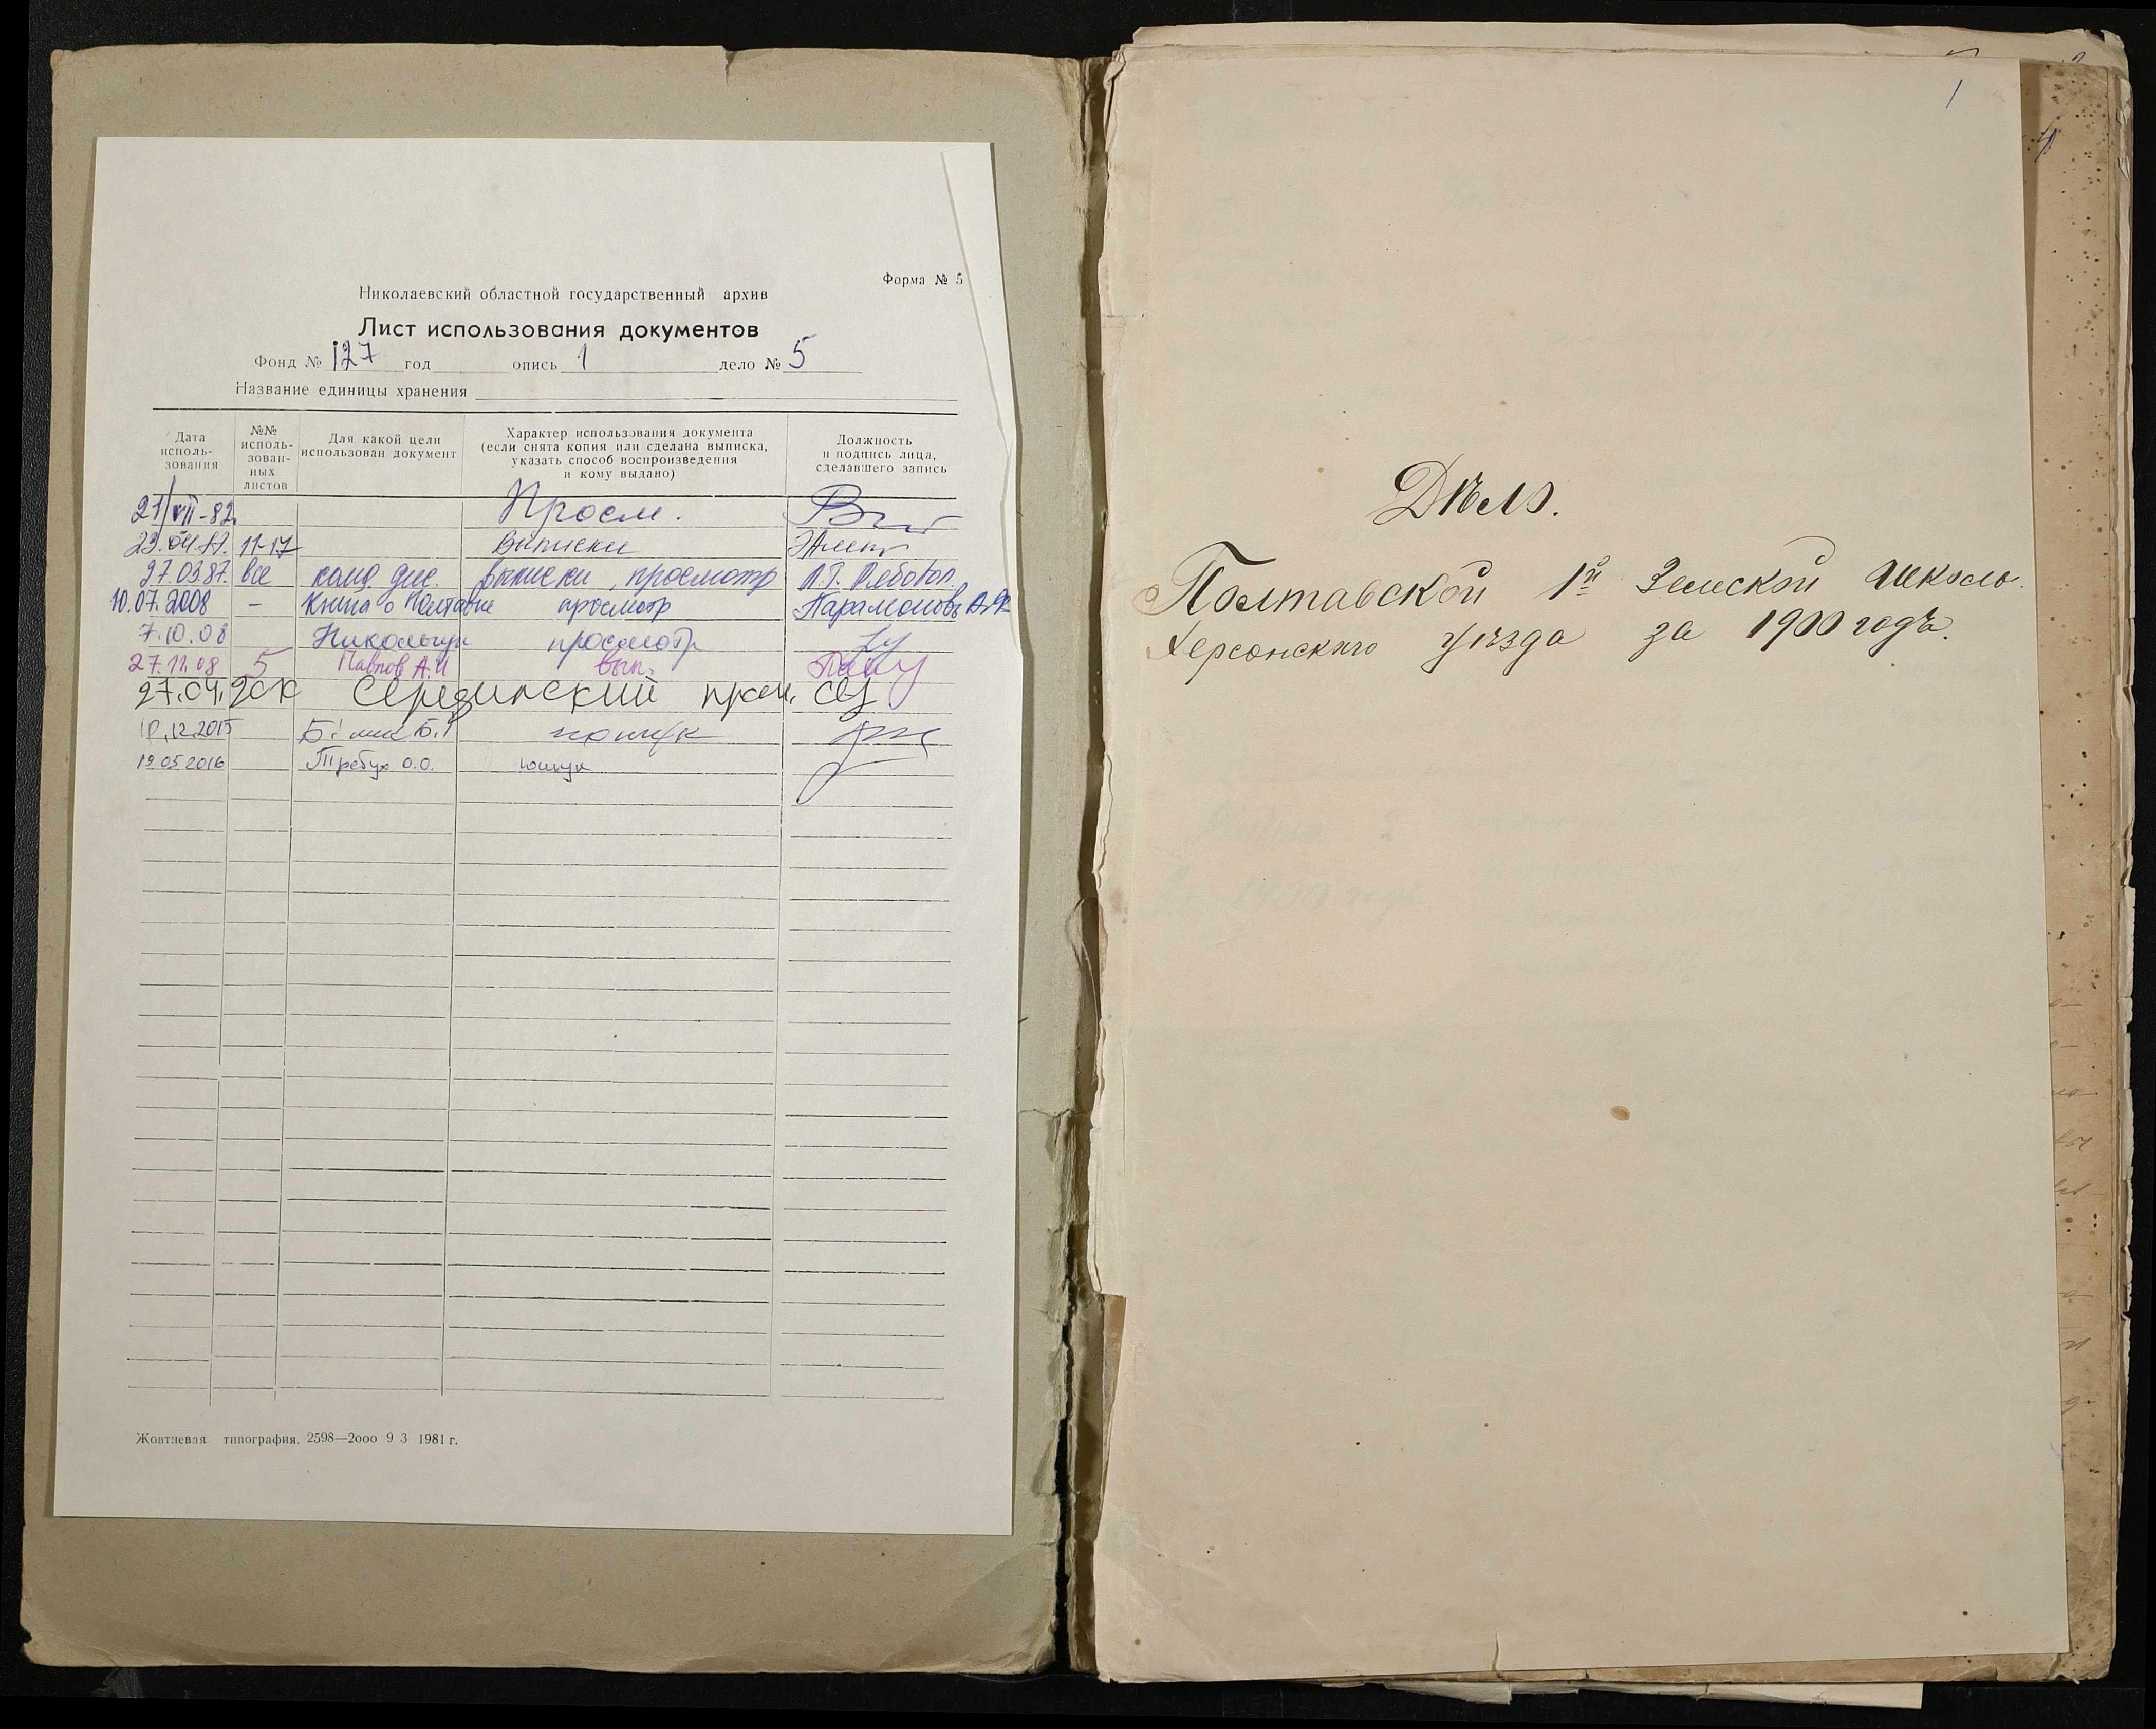 Форма № 5
Николаевский областной государственный архив
Лист использования документов
Фонд № 127 год опись 1 дело № 5
Название единицы хранения
Дата исполь-зования
№№ исполь-зован-ных листов
Для какой цели использован документ
Характер использования документа (если снята копия или сделана выписка, указать способ воспроизведения и кому выдано)
Должность и подпись лица, сделавшего запись
21/VII-82. Просм.
23.04.87. 11-17 выписки
27.03.87. все канд. дис. выписки, просмотр
10.07.2008 – Книга о Полтавке просмотр Парамонов
7.10.08 просмотр
27.11.08 5 Павлов А.И вып.
27.04. Серединский
10.12.2015 пошук
19.05.2016 О.О.
Жовтневая типография. 2598—2000 9 3 1981 г.
1
4
Дѣло.
Полтавской 1й Земской Школы.
Херсонскаго уѣзда за 1900 годъ.